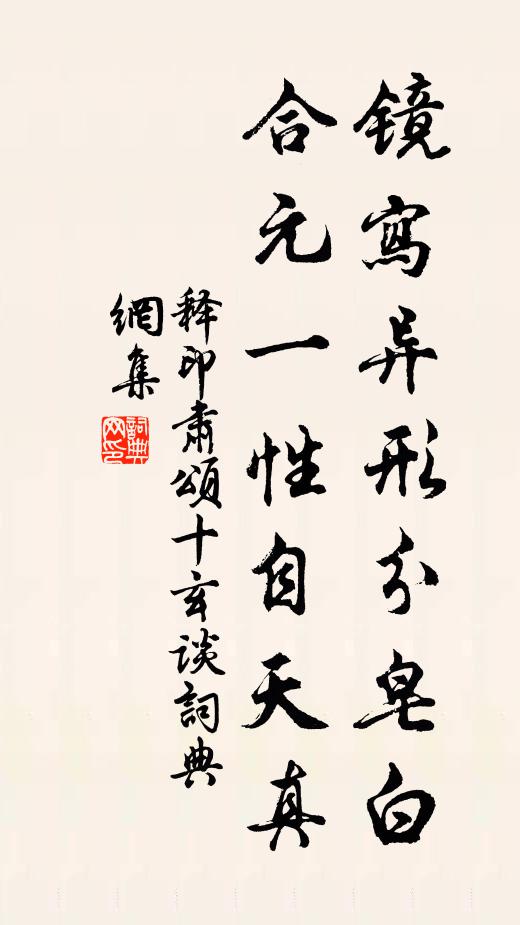 镜寫异形分皂白
合元一性自天真
释印肃頌十玄谈詞典
網集
詞典
网印